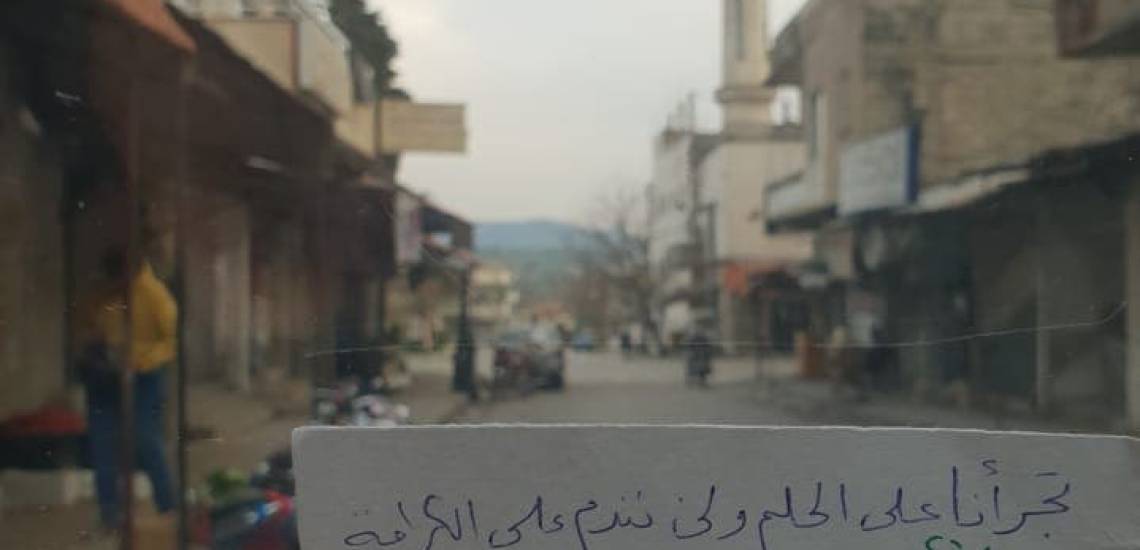 تجرأنا على الحلم ولن نندم على الكرامة